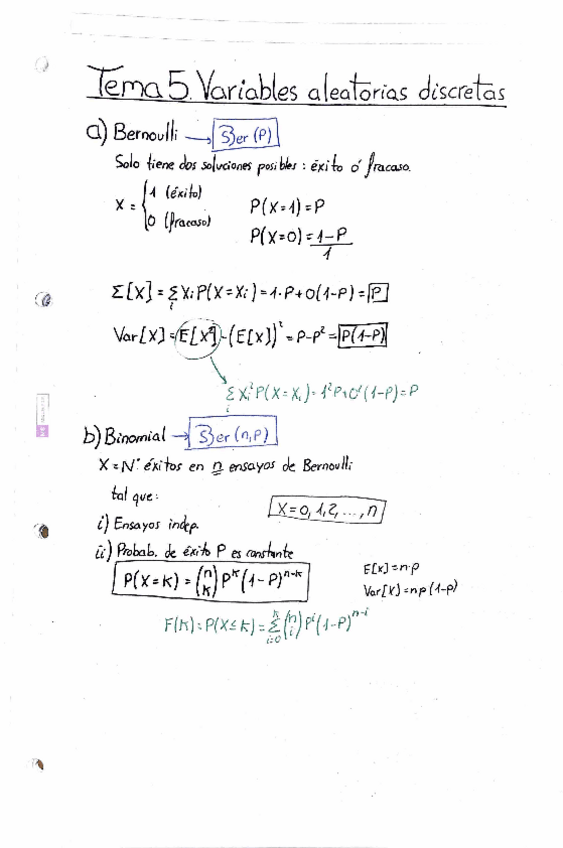 Tema 5. Variables aleatorias discretas
a) Bernoulli → Ber (p)
Solo tiene dos soluciones posibles : éxito ó fracaso.
X = { 1 (éxito)
0 (fracaso)
P(X=1)=P
P(X=0)=1-P
1
Σ[X] = Σ Xi P(X=Xi) = 1·P+0(1-P) = P
i
Var[X] = E[X²]-(E[X])² = P-P² = P(1-P)
Σ Xi² P(X=Xi) = 1²P+0²(1-P)=P
i
b) Binomial → Ber (n,p)
X = Nº éxitos en n ensayos de Bernoulli
tal que:
X=0,1,2,...,n
i) Ensayos indep.
ii) Probab. de éxito P es constante
P(X=k) = (n k) P^k (1-P)^n-k
E[x]=n·p
Var[X]=np(1-p)
F(k)=P(X≤k)= Σ k i=0 (n i) P^i (1-P)^n-i